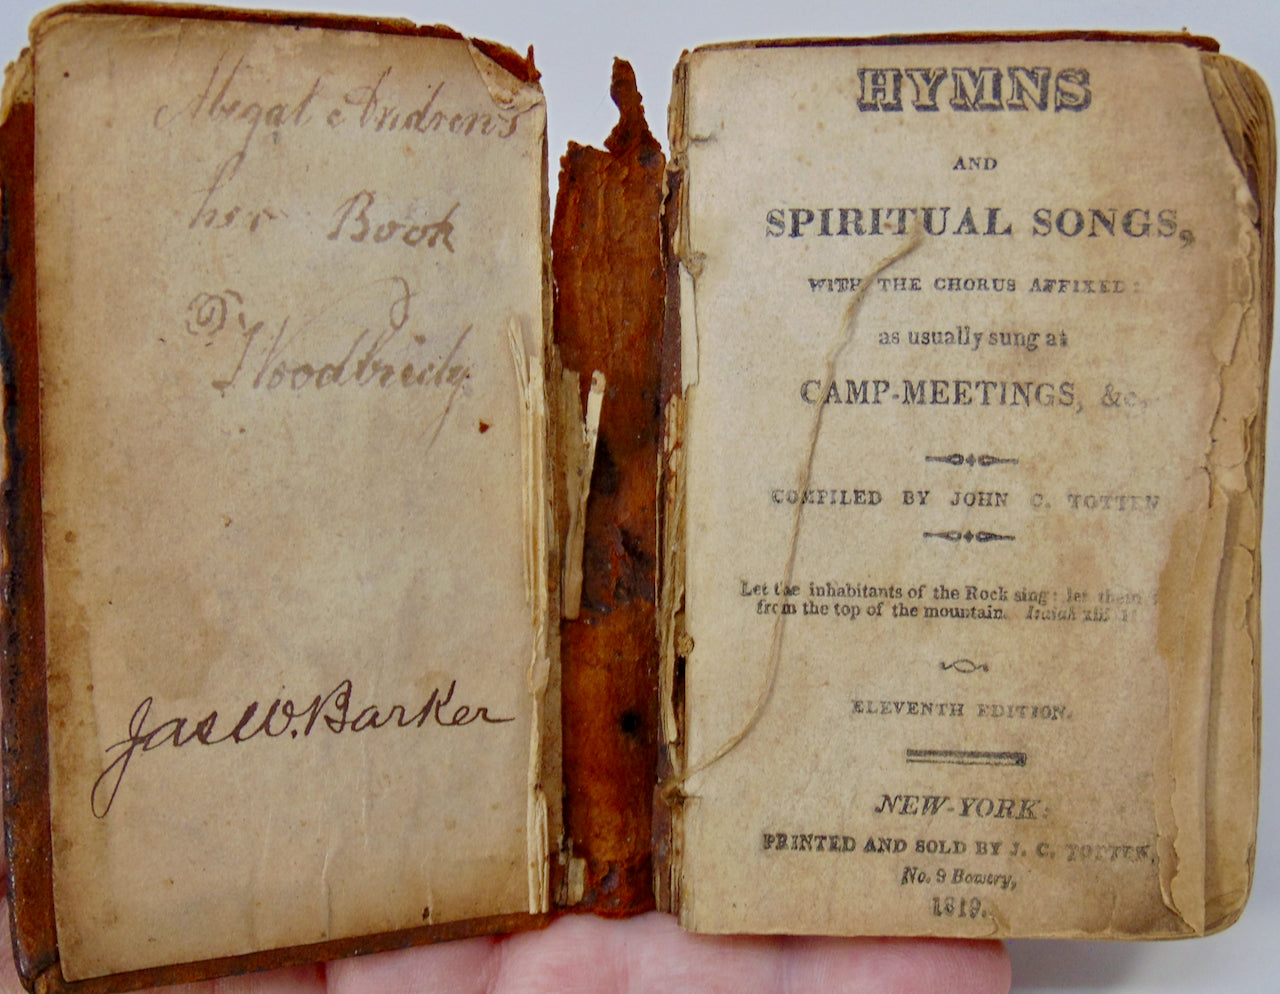 Abigal Andrews
her Book
Woodbridg
Jas W. Barker
HYMNS
AND
SPIRITUAL SONGS,
WITH THE CHORUS AFFIXED:
as usually sung at
CAMP-MEETINGS, &c.
COMPILED BY JOHN C. TOTTEN
Let the inhabitants of the Rock sing: let them
from the top of the mountain. Isaiah xlii. 11
ELEVENTH EDITION.
NEW-YORK:
PRINTED AND SOLD BY J. C. TOTTEN,
No. 9 Bowery,
1819.